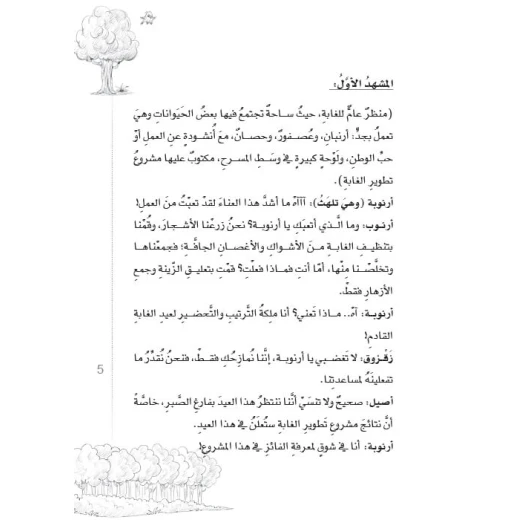 المشهدُ الأوَّلُ:
(منظرٌ عامٌّ للغابةِ، حيثُ ساحةٌ تجتمعُ فيها بعضُ الحَيَواناتِ وهيَ
تعملُ بجدٍّ: أرنبان، وعُصفورٌ، وحصانٌ، معَ أُنشودةٍ عنِ العملِ أوْ
حبِّ الوطنِ، ولَوْحةٍ كبيرةٍ في وسَطِ المسرحِ، مكتوبٌ عليها مشروعُ
تطويرِ الغابةِ).
أرنوبة (وهيَ تلهثُ): آآآهْ ما أشدَّ هذا العناءَ لقدْ تعبْتُ منَ العملِ!
أرنوب: وما الَّذي أتعبَكِ يا أرنوبة؟ نحنُ زرعْنا الأشجارَ، وقُمْنا
بتنظيفِ الغابةِ منَ الأشواكِ والأغصانِ الجافَّةِ؛ فجمعْناها
وتخلَّصْنا منْها، أمَّا أنتِ فماذا فعلْتِ؟ قمْتِ بتعليقِ الزِّينةِ وجمعِ
الأزهارِ فقطْ..
أرنوبة: آهْ.. ماذا تَعني؟ أنا ملكةُ التَّرتيبِ والتَّحضيرِ لعيدِ الغابةِ
القادمِ!
زقزوق: لا تَغضبي يا أرنوبة، إنَّنا نُمازحُكِ فقطْ، فنحنُ نُقدِّرُ ما
تفعلينَهُ لمساعدتِنا.
أصيل: صحيحٌ ولا تنسَيْ أنَّنا ننتظرُ هذا العيدَ بفارغِ الصَّبرِ، خاصَّةً
أنَّ نتائجَ مشروعِ تطويرِ الغابةِ ستُعلَنُ في هذا العيدِ.
أرنوبة: أنا في شوقٍ لمعرفةِ الفائزِ في هذا المشروعِ!
5